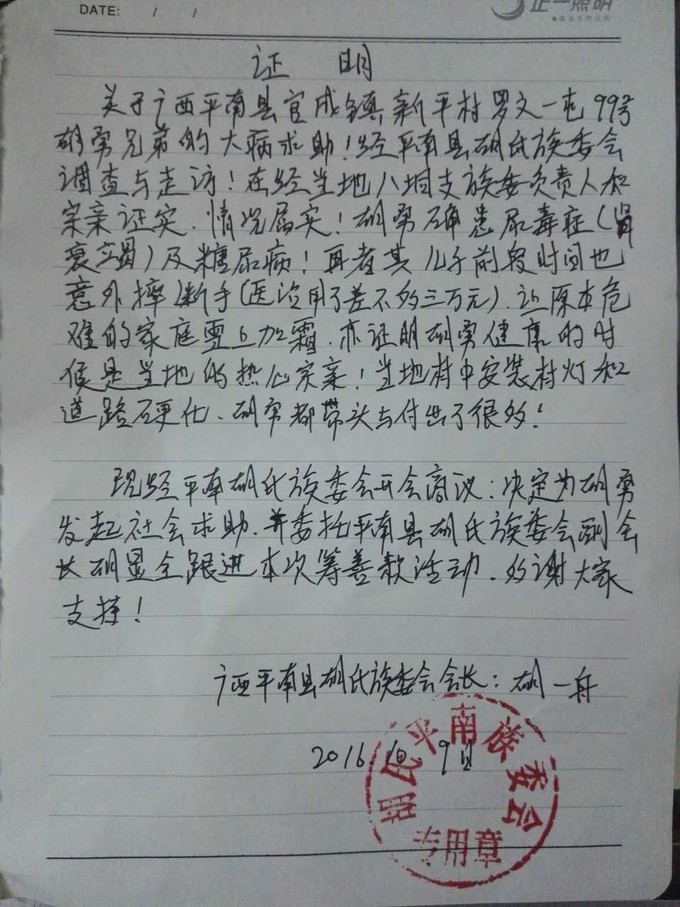 DATE: / /
正一照明
证 明
关于广西平南县官成镇新平村罗文一屯99号
胡勇兄弟的大病求助！经平南县胡氏族委会
调查与走访！在经当地八垌支族委负责人和
宗亲证实．情况属实！胡勇确患尿毒症（肾
衰竭）及糖尿病！再者其儿子前段时间也
意外摔断手（医治用了差不多三万元）．让原本危
难的家庭雪上加霜．亦证明胡勇健康的时
候是当地的热心宗亲！当地村中安装村灯和
道路硬化．胡勇都带头与付出了很多！
现经平南胡氏族委会开会商议：决定为胡勇
发起社会求助．并委托平南县胡氏族委会副会
长胡显全跟进本次筹善款活动．多谢大家
支持！
广西平南县胡氏族委会会长：胡一舟
2016 10 9日
胡氏平南族委会
专用章